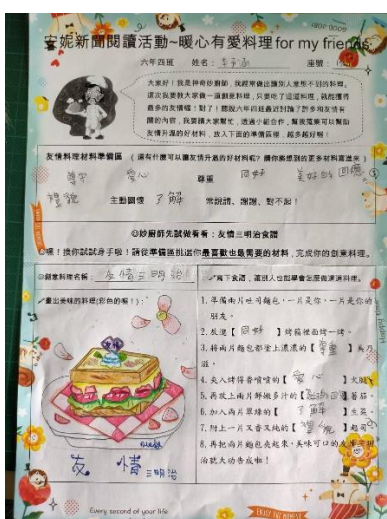 安妮新聞閱讀活動~暖心有愛料理 for my friends
六年四班 姓名: 座號:
大家好!我是神奇妙廚師,我經常做出讓別人意想不到的料理。
這次我要教大家做一道創意料理,只要吃了這道料理,就能獲得
最多的友情喔!對了!聽說六年四班最近討論了許多和友情有
關的內容,我要請大家幫忙,透過小組合作,幫我蒐集可以幫助
友情升溫的好材料,放入下面的準備區裡,越多越好喔!
友情料理材料準備區(還有什麼可以讓友情升溫的好材料呢?請你能想到的更多材料寫進來)
愛心 尊重 同好 美好的回憶
禮貌 主動關懷 了解 常說請、謝謝、對不起!
◎妙廚師先試做看看:友情三明治食譜
◎嘿!換你試試身手啦!請從準備區挑選你最喜歡也最需要的材料,完成你的創意料理。
創意料理名稱:友情三明治
寫下食譜,讓別人也能學會怎麼做這道料理。
畫出美味的料理(彩色的喔!):
友情三明治
1. 準備兩片吐司麵包,一片是你,一片是你的
朋友。
2. 放進【同好】烤箱裡面烤一烤。
3. 將兩片麵包都塗上濃濃的【尊重】美乃
滋。
4. 夾入烤得香噴噴的【愛心】火腿
5. 再放上兩片鮮嫩多汁的【美好回憶】番茄。
6. 加入兩片翠綠的【了解】生菜。
7. 附上一片又香又純的【禮貌】起司
8. 再把兩片麵包夾起來,美味可口的友情三明
治就大功告成啦!
Every second of your life
ENJOY THE MOMENT